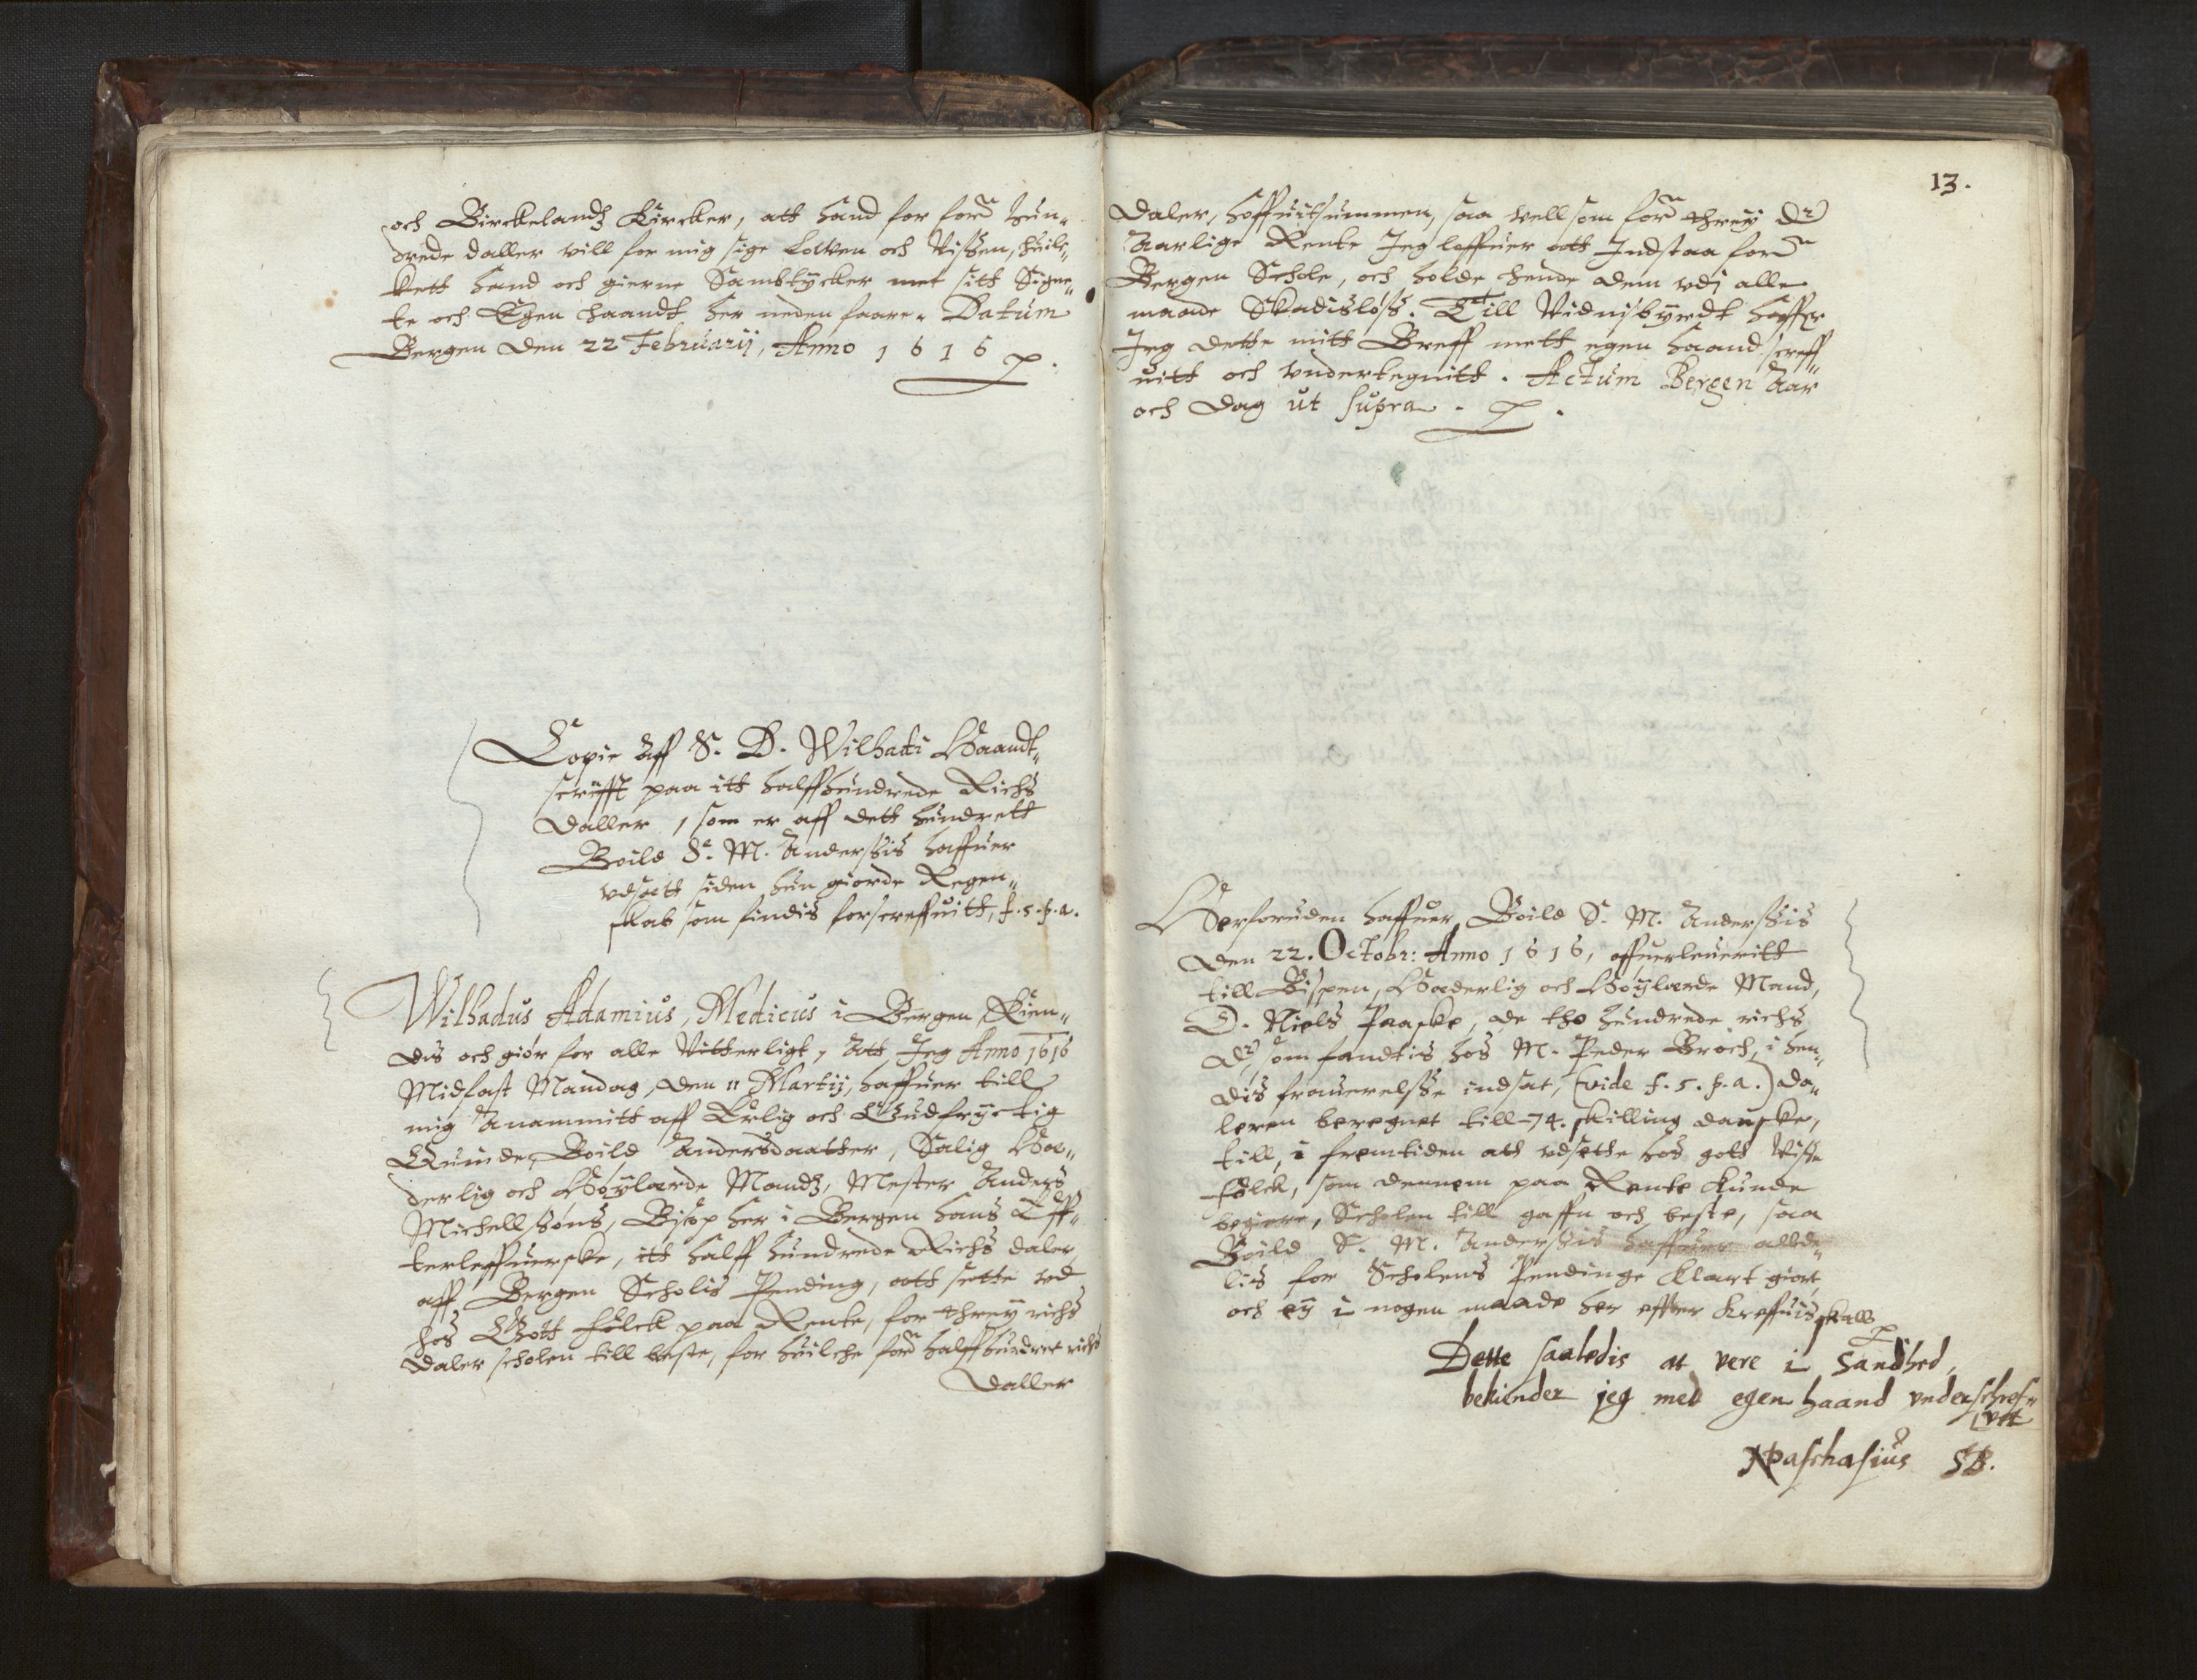 och Birckelandz Kircker, att hand for forne hun„
drede daller vill for mig sige Lowen och Vissen, huilc„
kett hand och gierne Samtycker met sitt Signe„
te och Egen Haandt her neden faare. Datum
Bergen den 22 Februarij, Anno 1616
Copie Aff S. D. Wilhadi Haandt„
scrifft paa itt halffhundrede Richs
Daller, som er aff dett hundrett
Boild Se. M. Anderssis haffuer
vdsatt siden hun giorde Regen„
skab som findis forscreffuitt, f. 5. p. a.
Wilhadus Adamius, Medicus i Bergen Kien„
dis och giør for alle Vitterligt, Att Jeg Anno 1616
Midfast Mandag, den 11 Martij, haffuer till
mig Anammitt aff Erlig och Gudfryctig
Quinde, Boild Andersdaatter, Salig Hæ„
derlig och Høylærde Mandz, Mester Anders
Michellssøns, Bisop her i Bergen hans Eff„
terleffuerske, itt halff hundrede Richs daler
aff Bergen Scholis Pending, att sette vd
hos Gott folck paa Rente, for threy richs
daler scholen till beste, for huilche forne halffhundret richs
Daller
13.
Daler, hoffuitsummen, saa vell som forne threy dr
Aarlige Rente Jeg loffuer att Indstaa forne
Bergen Schole, och holde hende dem vdj alle
maade Skadisløss. Till Vidnisbyrdt haffr
Jeg dette mitt Breff mett egen haand screff„
uitt och vndertegnitt. Actum Bergen Aar
och Dag ut supra.
Herforuden haffuer Boild S. M. Anderssis
den 22. Octobr: Anno 1616, offuerleueritt
till Bispen, Hæderlig och Høylærde Mand,
D. Niels Paaske, de tho hundrede richs
dr, som fandtis hos M. Peder Broch, i hen„
dis frauerelsse indsat, (vide f. 5. p. a.) da„
leren beregnet till 74. skilling danske,
till, i fremtiden att vdsette hos gott Visse
folck, som dennem paa Rente kunde
begiere, Scholen till gaffn och beste, saa
Boild S. M. Anderssis haffuer aldde„
lis for Scholens Pendinge klart giort,
och ey i nogen maade her effter kreffuis skall
Dette saaledis at vere i Sandhed,
bekiender jeg med egen haand vnderschref„
vit
NPaschasius SB.